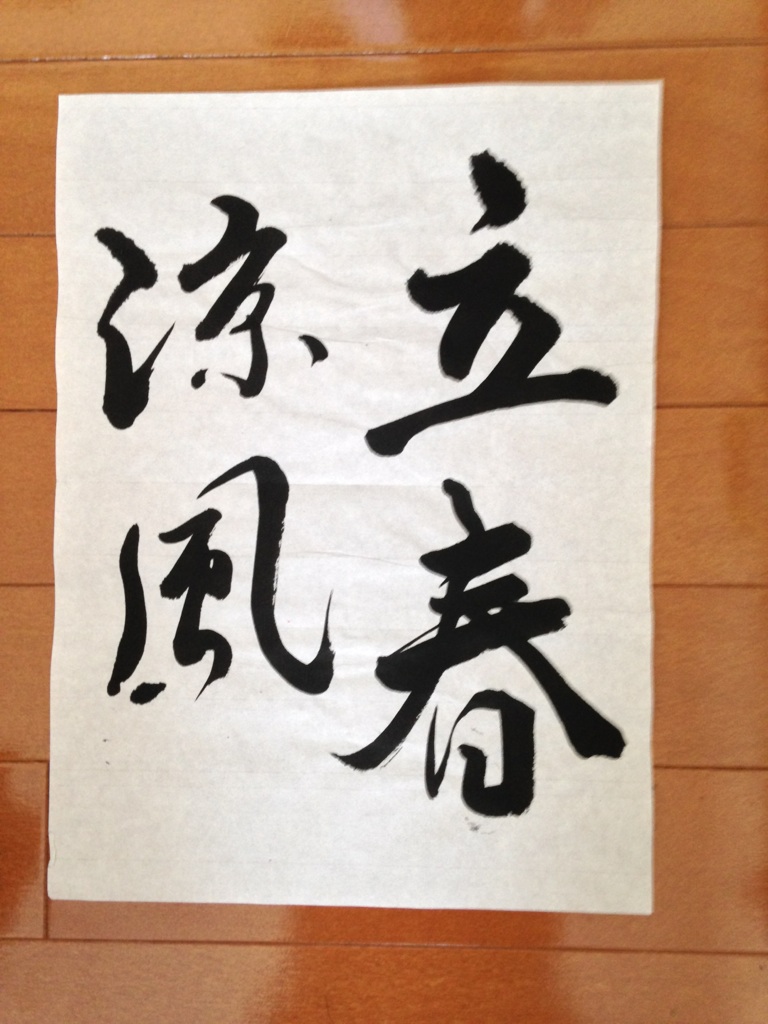 立春
涼風